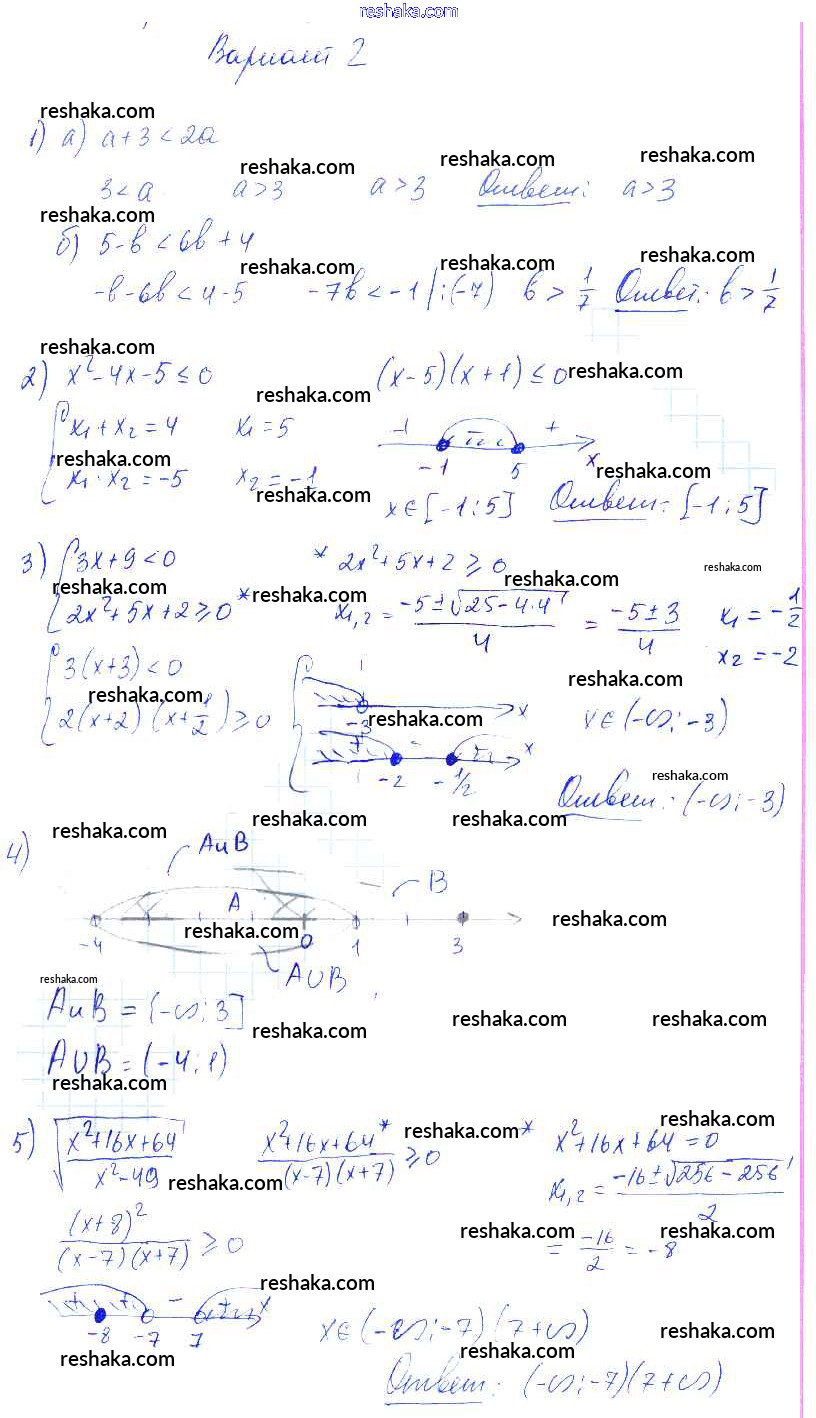 reshaka.com
Вариант 2
reshaka.com
1) а) a+3<2a
reshaka.com reshaka.com reshaka.com
3<a a>3 a>3 Ответ: a>3
reshaka.com
б) 5-b<6b+4
reshaka.com reshaka.com reshaka.com
-b-6b<4-5 -7b<-1 |:(-7) b>1/7 Ответ: b>1/7
reshaka.com
2) x²-4x-5≤0 (x-5)(x+1)≤0 reshaka.com
reshaka.com
{ x₁+x₂=4 x₁=5 + - + x
reshaka.com reshaka.com
x₁·x₂=-5 x₂=-1 -1 5
reshaka.com
x∈[-1;5] Ответ: [-1;5]
3) { 3x+9<0 * 2x²+5x+2≥0 reshaka.com
reshaka.com reshaka.com reshaka.com
2x²+5x+2≥0* x₁,₂=(-5±√(25-4·4))/4 = (-5±3)/4 x₁=-1/2
x₂=-2
{ 3(x+3)<0 reshaka.com
reshaka.com reshaka.com
2(x+2)(x+1/2)≥0 -3 x x∈(-∞;-3)
+ - + x
-2 -1/2
reshaka.com
Ответ: (-∞;-3)
reshaka.com reshaka.com reshaka.com
4) AиB B
A
reshaka.com reshaka.com
-4 0 1 3
A∪B
reshaka.com
AиB = (-∞;3]
reshaka.com reshaka.com reshaka.com
A∪B=(-4;1)
reshaka.com
reshaka.com
5) √((x²+16x+64)/(x²-49)) (x²+16x+64*)/((x-7)(x+7))≥0 reshaka.com * x²+16x+64=0
reshaka.com
x₁,₂=(-16±√(256-256))/2
reshaka.com reshaka.com
(x+8)²/((x-7)(x+7))≥0 =-16/2=-8
reshaka.com
+ + - + x
-8 -7 7 x∈(-∞;-7)(7+∞)
reshaka.com
reshaka.com reshaka.com
Ответ: (-∞;-7)(7+∞)